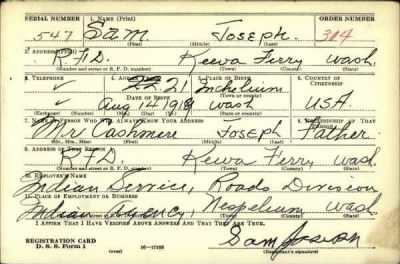 SERIAL NUMBER 1. NAME (Print) ORDER NUMBER
547 Sam Joseph 304
(First) (Middle) (Last)
2. ADDRESS (Print)
R.F.D. Keewa Ferry Wash.
(Number and street or R. F. D. number) (Town) (County) (State)
3. TELEPHONE 4. AGE IN YEARS 5. PLACE OF BIRTH 6. COUNTRY OF CITIZENSHIP
✓ 22 21 Inchelium
DATE OF BIRTH
✓ Aug 14 1919 Wash U.S.A.
7. NAME OF PERSON WHO WILL ALWAYS KNOW YOUR ADDRESS 8. RELATIONSHIP OF THAT PERSON
Mr. Cashmere Joseph Father
(Mr., Mrs., Miss) (First) (Middle) (Last)
9. ADDRESS OF THAT PERSON
RFD Keewa Ferry Wash.
(Number and street or R. F. D. number) (Town) (County) (State)
10. EMPLOYER'S NAME
Indian Service, Roads Division
11. PLACE OF EMPLOYMENT OR BUSINESS
Indian Agency, Nespelem Wash
(Number and street or R. F. D. number) (Town) (County) (State)
I AFFIRM THAT I HAVE VERIFIED ABOVE ANSWERS AND THAT THEY ARE TRUE.
Sam Joseph
REGISTRATION CARD
D. S. S. Form 1 (over) 16—17198 (Registrant's signature)